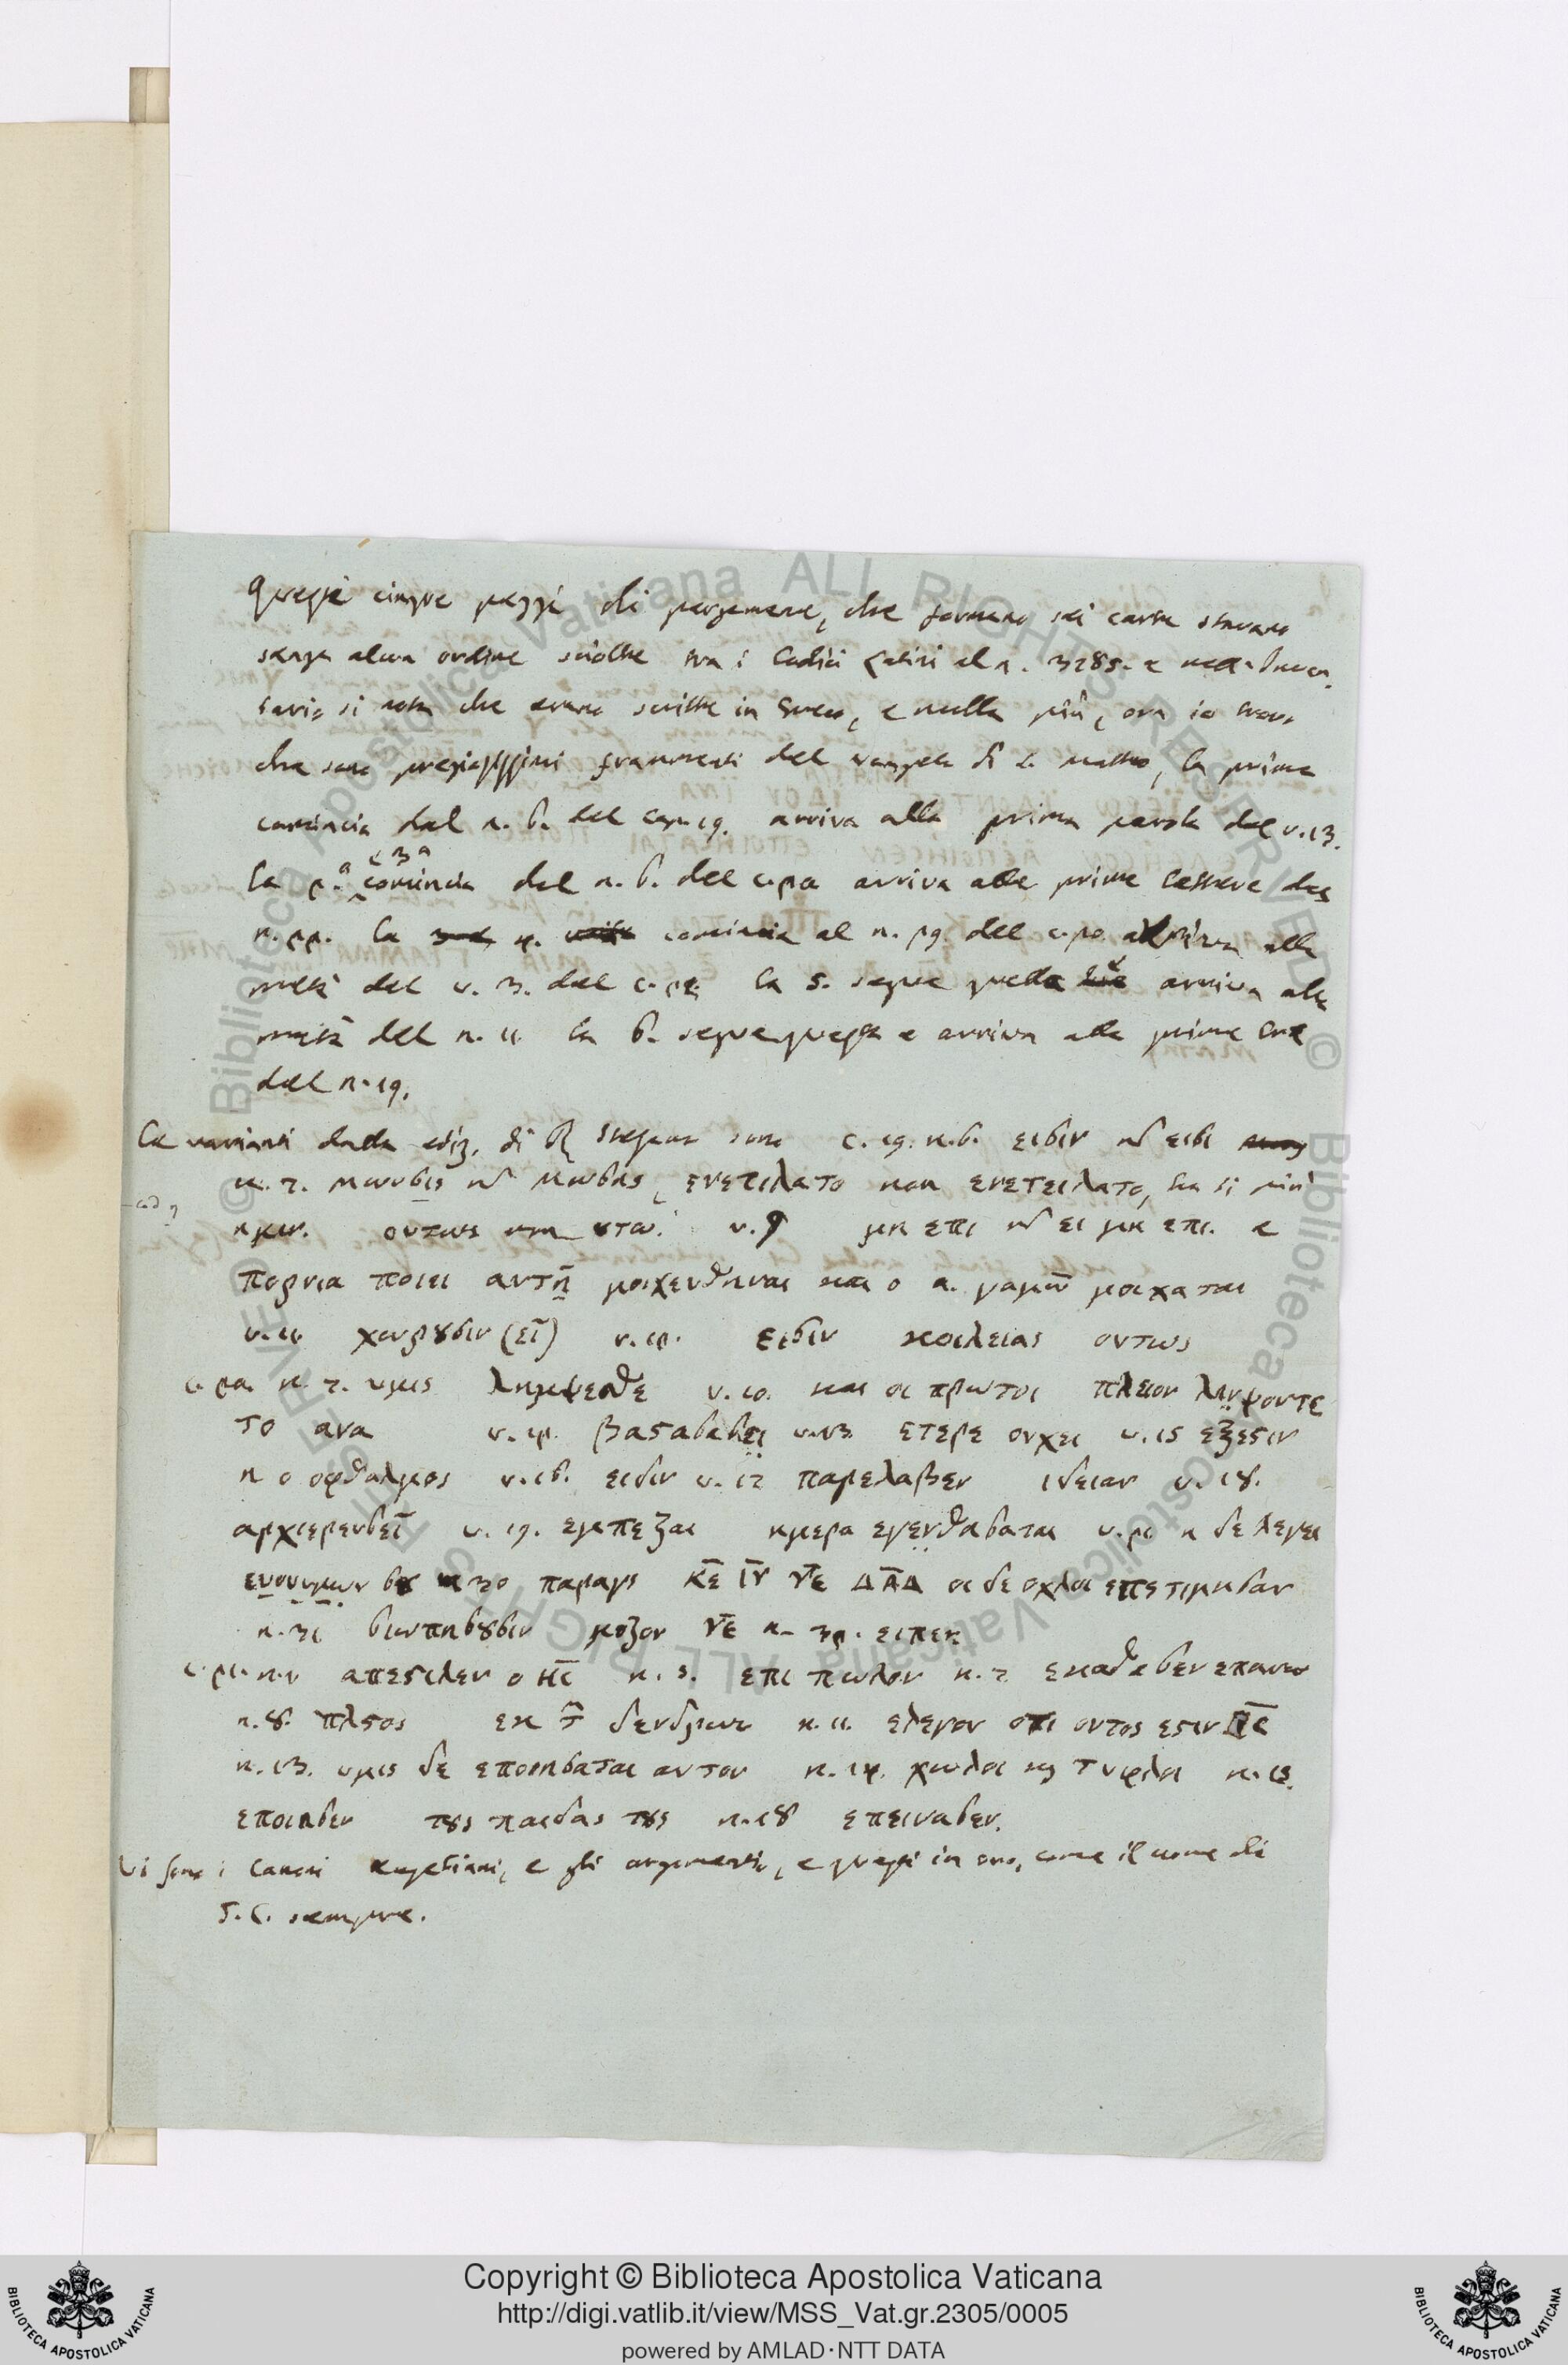 Queste cinque pezzi di pergamene, che formano sei carte stavano
senza alcun ordine sciolte tra i Codici Latini al n. 3785. e nell' Inven
tario si nota che erano scritte in Greco, e nulla più, ora io trovo
che sono preziosissimi frammenti del vangelo di S. Matteo, la prima
comincia dal n. 6. del cap. 19. arriva alla prima parola del v. 13.
la 2.a e 3a comincia dal n. 6. del c. 20 arriva alle prime lettere del
n. 22. la 4. comincia al n. 29. del c. 20. arriva alla
metà del v. 3. del c. 21. la 5. segue quella arriva alla
metà del n. 11 la 6. segue questa e arriva alle prime
del n. 19.
Le varianti dalla ediz. di Stefano sono c. 19. n. 6. εισιν εισι
n. 7. μωυσις μωσης, ενετιλατο non ενετειλατο, ha di più
ημιν. ουτως non ουτω. v. 9 μη επι ει μη επι. e
πορνια ποιει αυτη μοιχευθηναι και ο α. γαμων μοιχαται
v. 11 χωρουσιν v. 12. εισιν κοιλειας ουτως
c. 20. n. 7. υμις λημψεσθε v. 10. και οι πρωτοι πλειον
το ανα v. 12. v. 13. ετερε ουχει v. 15 εξεστιν
η ο οφθαλμος v. 16. εισιν v. 17 παρελαβεν ιδειαν v. 18.
αρχιερευσει v. 19. εμπεξαι ημερα v. 21 η δε λεγει
ευωνυμων σου n. 30 παραγι ΚΕ ΙΥ ΥΕ ΔΑΔ οι δε οχλοι επετιμησαν
n. 31 σιωπησουσιν μιζον ΥΕ n. 32. ειπεν
c. 21. n. 1 απεστιλεν ο ΙΣ n. 5. επι πωλον n. 7 εκαθεισεν επανω
n. 8. πλιστος εκ τ δενδρων n. 11. ελεγον οτι ουτος εστιν ΙΣ
n. 13. υμις δε εποιησαται αυτον n. 14. χωλοι και τυφλοι n. 15.
εποιησεν τους παιδας τους n. 18 επεινασεν.
Vi sono i Canoni Eusebiani, e gli argomenti, e questi in oro, come il nome di
G. C. sempre.
Copyright © Biblioteca Apostolica Vaticana
http://digi.vatlib.it/view/MSS_Vat.gr.2305/0005
powered by AMLAD·NTT DATA
BIBLIOTECA APOSTOLICA VATICANA
BIBLIOTECA APOSTOLICA VATICANA